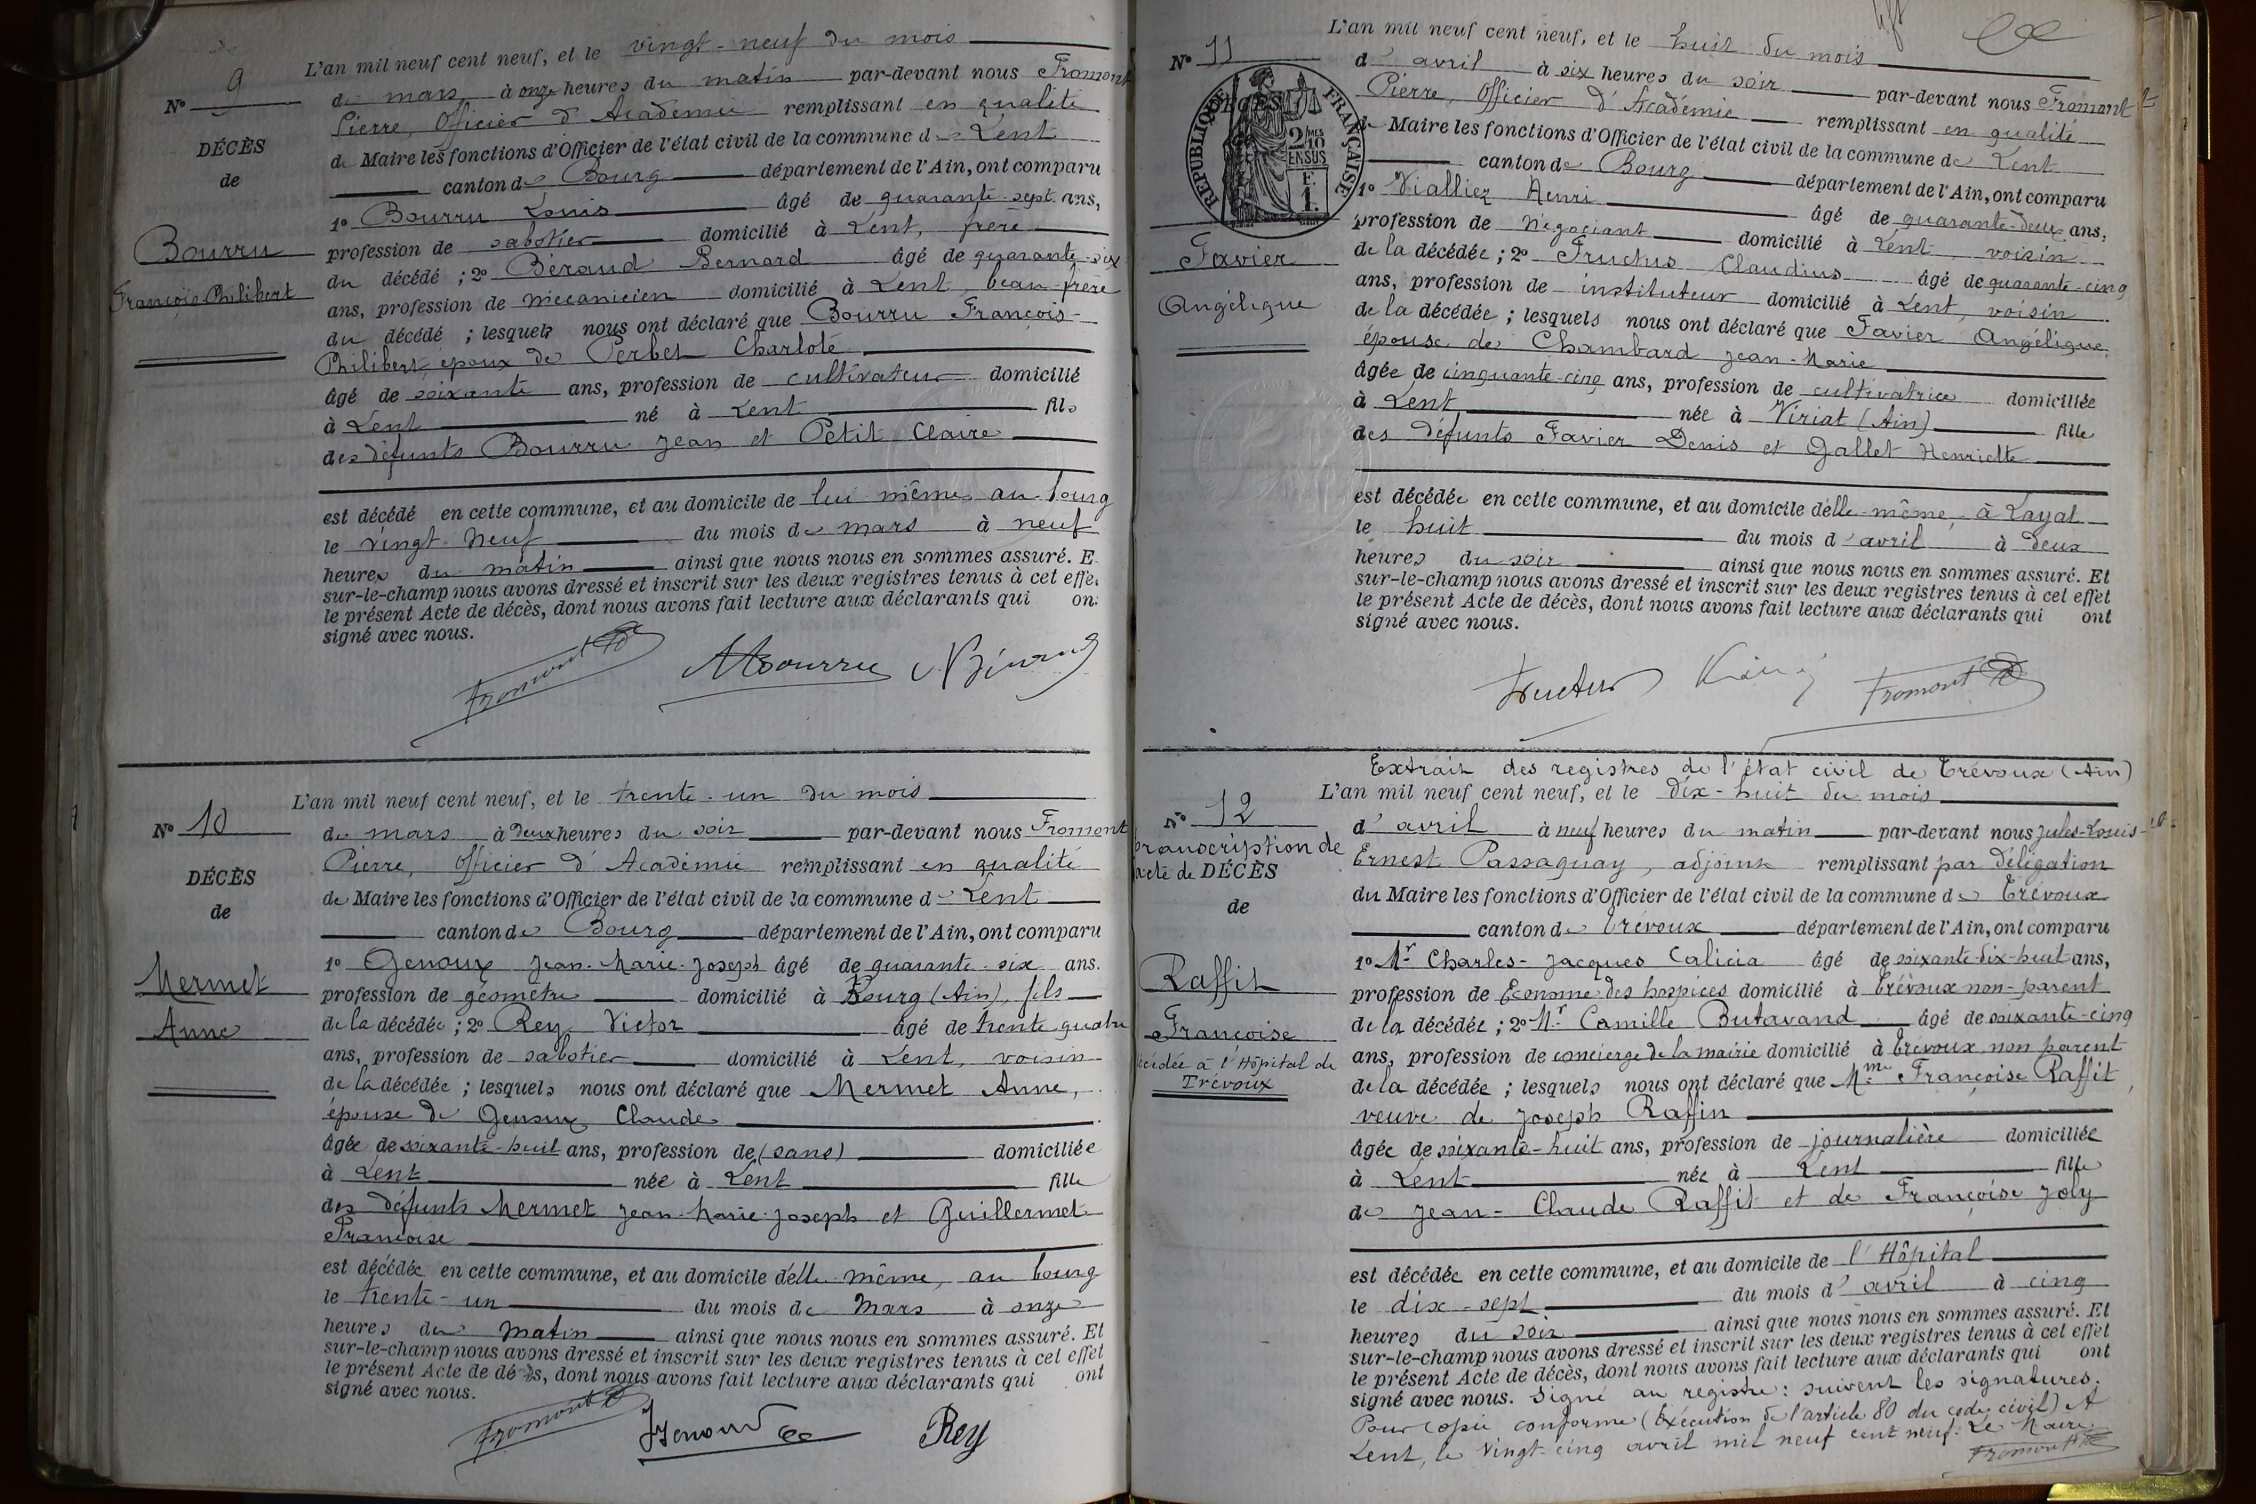 L'an mil neuf cent neuf, et le vingt-neuf du mois
N° 9
de mars à onze heures du matin par-devant nous Fromont
Pierre, Officier d'Académie remplissant en qualité
DÉCÈS
de Maire les fonctions d'Officier de l'état civil de la commune de Lent
de
canton de Bourg département de l'Ain, ont comparu
1° Bourru Louis âgé de quarante-sept ans,
Bourru
profession de sabotier domicilié à Lent, frère
du décédé ; 2° Béraud Bernard âgé de quarante-six
François Philibert
ans, profession de mécanicien domicilié à Lent, beau-frère
du décédé ; lesquels nous ont déclaré que Bourru François-
Philibert, époux de Perbet Charlote
âgé de soixante ans, profession de cultivateur domicilié
à Lent né à Lent fils
des défunts Bourru Jean et Petit Claire
est décédé en cette commune, et au domicile de lui même, au bourg
le vingt-neuf du mois de mars à neuf
heures du matin ainsi que nous nous en sommes assuré. E
sur-le-champ nous avons dressé et inscrit sur les deux registres tenus à cet effe
le présent Acte de décès, dont nous avons fait lecture aux déclarants qui on
signé avec nous.
Fromont Bourru Béraud
L'an mil neuf cent neuf, et le trente-un du mois
N° 10
de mars à deux heures du soir par-devant nous Fromont
Pierre, Officier d'Académie remplissant en qualité
DÉCÈS
de Maire les fonctions d'Officier de l'état civil de la commune de Lent
de
canton de Bourg département de l'Ain, ont comparu
1° Genoux Jean-Marie-Joseph âgé de quarante-six ans.
Mermet
profession de géomètre domicilié à Bourg (Ain), fils
Anne
de la décédée ; 2° Rey Victor âgé de trente quatre
ans, profession de sabotier domicilié à Lent, voisin
de la décédée ; lesquels nous ont déclaré que Mermet Anne,
épouse de Genoux Claude
âgée de soixante-huit ans, profession de (sans) domiciliée
à Lent née à Lent fille
des défunts Mermet Jean-Marie-Joseph et Guillermet
Françoise
est décédée en cette commune, et au domicile d'elle-même, au bourg
le trente-un du mois de Mars à onze
heures du matin ainsi que nous nous en sommes assuré. Et
sur-le-champ nous avons dressé et inscrit sur les deux registres tenus à cet effet
le présent Acte de décès, dont nous avons fait lecture aux déclarants qui ont
signé avec nous.
Fromont JGenoux Rey
L'an mil neuf cent neuf, et le huit du mois
N° 11
d'avril à six heures du soir par-devant nous Fromont
Pierre, Officier d'Académie remplissant en qualité
RÉPUBLIQUE FRANÇAISE
2/10MES EN SUS
F. 1.
de Maire les fonctions d'Officier de l'état civil de la commune de Lent
canton de Bourg département de l'Ain, ont comparu
1° Viallier Henri âgé de quarante-deux ans,
profession de Négociant domicilié à Lent, voisin
Favier
de la décédée ; 2° Fructus Claudius âgé de quarante-cinq
Angélique
ans, profession de instituteur domicilié à Lent, voisin
de la décédée ; lesquels nous ont déclaré que Favier Angélique
épouse de Chambard Jean-Marie
âgée de cinquante-cinq ans, profession de cultivatrice domiciliée
à Lent née à Viriat (Ain) fille
des défunts Favier Denis et Gallet Henriette
est décédée en cette commune, et au domicile d'elle-même, à Layat
le huit du mois d'avril à deux
heures du soir ainsi que nous nous en sommes assuré. Et
sur-le-champ nous avons dressé et inscrit sur les deux registres tenus à cet effet
le présent Acte de décès, dont nous avons fait lecture aux déclarants qui ont
signé avec nous.
Fructus Fromont
Extrait des registres de l'état civil de Trévoux (Ain)
L'an mil neuf cent neuf, et le dix-huit du mois
N° 12
d'avril à neuf heures du matin par-devant nous Jules-Louis-
transcription de
Ernest Passaquay, adjoint remplissant par délégation
acte de DÉCÈS
du Maire les fonctions d'Officier de l'état civil de la commune de Trévoux
de
canton de Trévoux département de l'Ain, ont comparu
1° Mr Charles-Jacques Calicia âgé de soixante-dix-huit ans,
Raffit
profession de Econome des hospices domicilié à Trévoux non-parent
Françoise
de la décédée ; 2° Mr Camille Butavand âgé de soixante-cinq
décédée à l'Hôpital de
Trévoux
ans, profession de concierge de la mairie domicilié à Trévoux non parent
de la décédée ; lesquels nous ont déclaré que Mme Françoise Raffit,
veuve de Joseph Raffin
âgée de soixante-huit ans, profession de journalière domiciliée
à Lent née à Lent fille
de Jean-Claude Raffit et de Françoise Joly
est décédée en cette commune, et au domicile de l'Hôpital
le dix-sept du mois d'avril à cinq
heures du soir ainsi que nous nous en sommes assuré. Et
sur-le-champ nous avons dressé et inscrit sur les deux registres tenus à cet effet
le présent Acte de décès, dont nous avons fait lecture aux déclarants qui ont
signé avec nous. Signé au registre : suivent les signatures.
Pour copie conforme (Exécution de l'article 80 du code civil) A
Lent, le vingt-cinq avril mil neuf cent neuf. Le Maire
Fromont